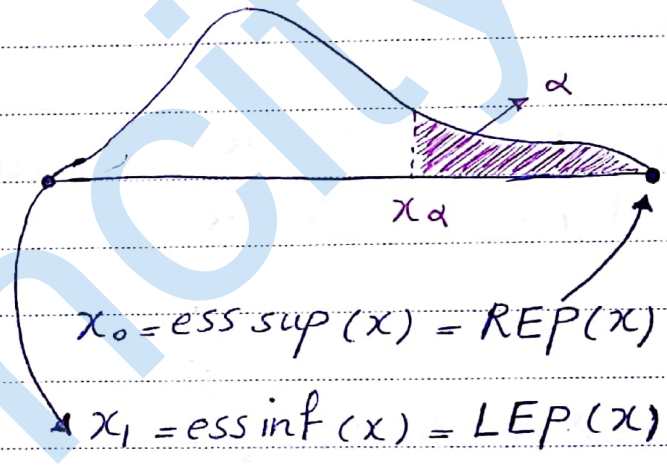 α
x α
x₀ = ess sup (x) = REP(x)
x₁ = ess inf (x) = LEP (x)